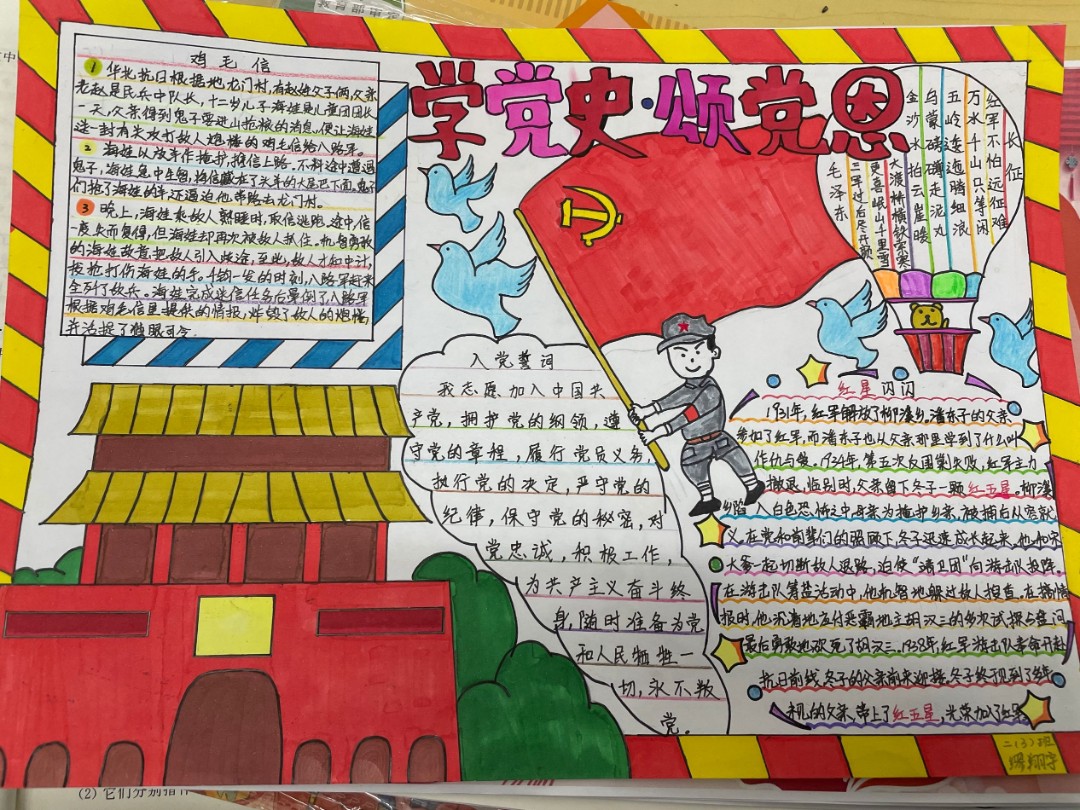 学党史·颂党恩
鸡毛信
1 华北抗日根据地龙门村,有赵姓父子俩,父亲
老赵是民兵中队长,十二岁儿子海娃是儿童团团长
一天,父亲得到鬼子要进山抢粮的消息,便让海娃
送一封有关攻打敌人炮楼的鸡毛信给八路军。
2 海娃以放羊作掩护,携信上路,不料途中遭遇
鬼子,海娃急中生智,将信藏在了头羊的大尾巴下面。鬼子
们抢了海娃的羊,还逼迫他带路去龙门村。
3 晚上,海娃乘敌人熟睡时,取信逃跑,途中信
一度失而复得,但海娃却再次被敌人抓住。机智勇敢
的海娃故意把敌人引入歧途,至此,敌人才知中计,
被枪打伤海娃的手。千钧一发的时刻,八路军赶来
全歼了敌兵。海娃完成送信任务后晕倒了,八路军
根据鸡毛信里提供的情报,炸毁了敌人的炮楼
并活捉了猫眼司令.
长征
红军不怕远征难
万水千山只等闲
五岭逶迤腾细浪
乌蒙磅礴走泥丸
金沙水拍云崖暖
大渡桥横铁索寒
更喜岷山千里雪
三军过后尽开颜
毛泽东
入党誓词
我志愿加入中国共
产党,拥护党的纲领,遵
守党的章程,履行党员义务,
执行党的决定,严守党的
纪律,保守党的秘密,对
党忠诚,积极工作,
为共产主义奋斗终
身,随时准备为党
和人民牺牲一
切,永不叛
党。
红星闪闪
1931年,红军解放了柳溪乡。潘东子的父亲
参加了红军,而潘东子也从父亲那里学到了什么叫
作仇与爱。1934年,第五次反围剿失败,红军主力
撤退,临别时,父亲留下冬子一颗红五星。柳溪
陷入白色恐怖之中,母亲为掩护乡亲,被捕后从容就
义,在党和前辈们的照顾下,冬子迅速成长起来,他和宋
大爹一起切断敌人退路,迫使“靖卫团”向游击队投降。
在游击队筹盐活动中,他机智地躲过敌人搜查,在搞情
报时,他沉着地应付恶霸地主胡汉三的多次试探与盘问
最后勇敢地砍死了胡汉三。1938年,红军游击队奉命开赴
抗日前线,冬子的父亲前来迎接,冬子终于见到了
的父亲,带上了红五星,光荣加入了红军
二(3)班
翔宇
(2) 它们分别指什